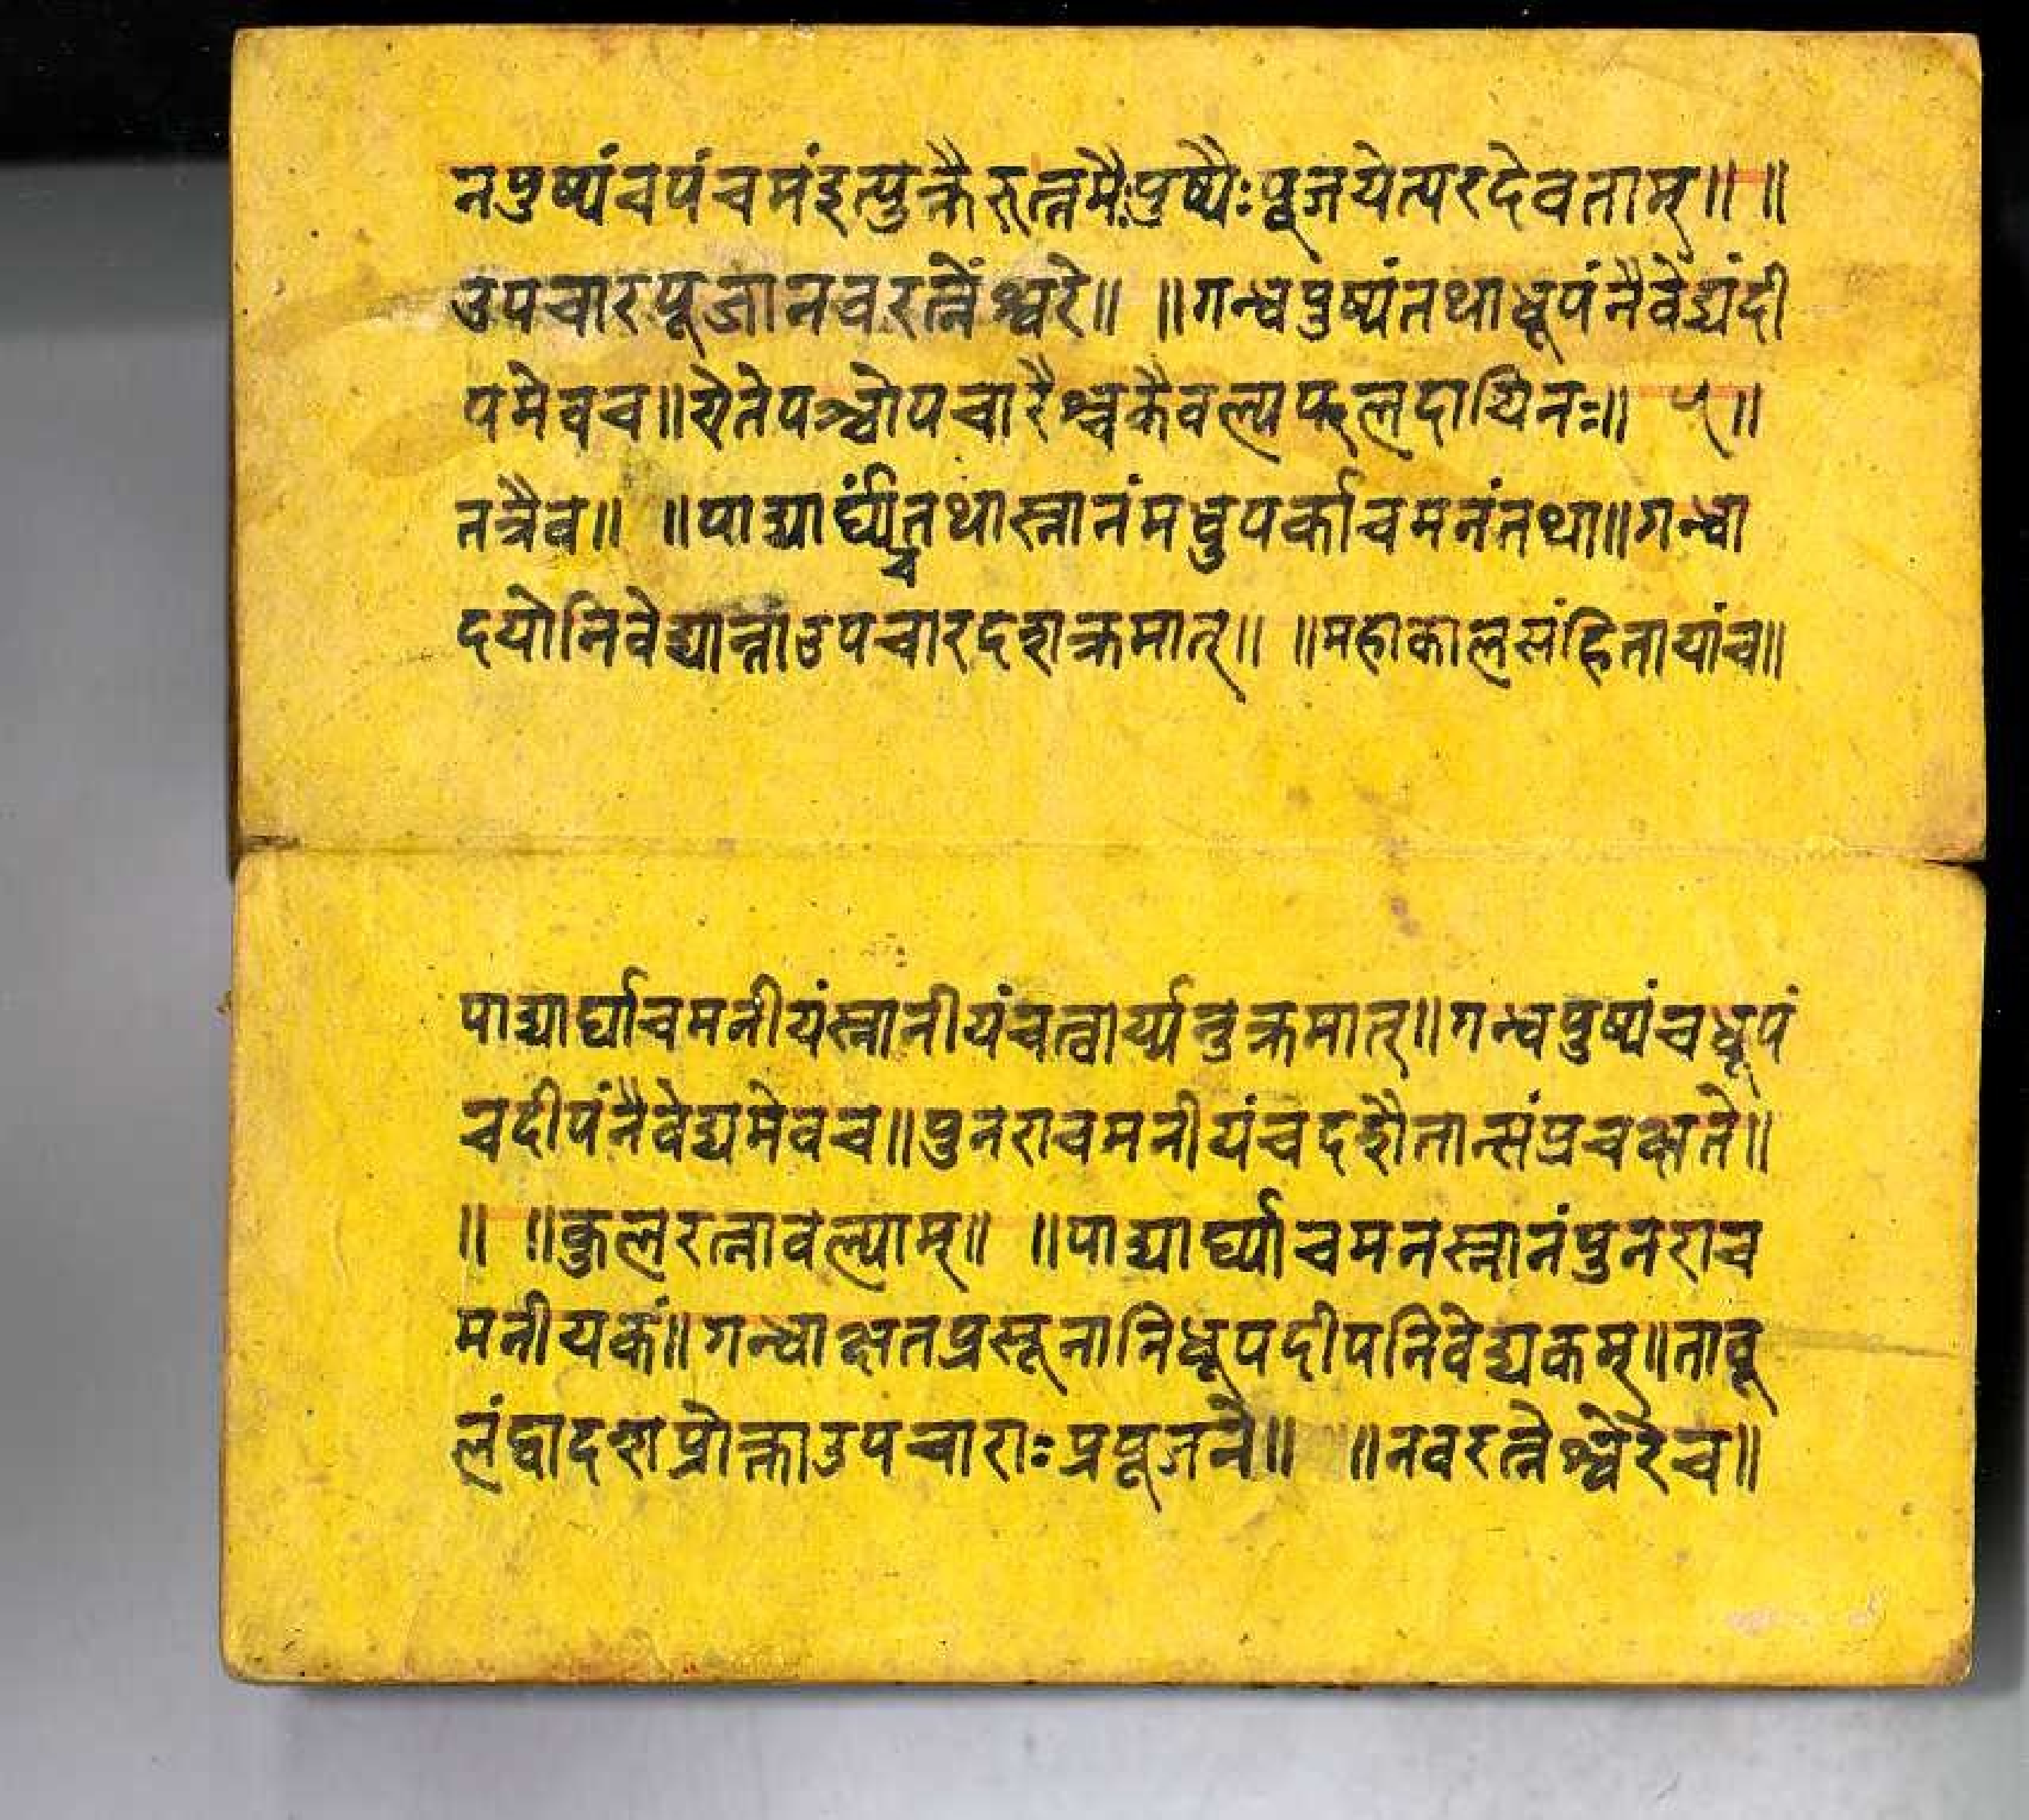 नपुष्पंचपंचमंइत्युक्तैरुत्तमैःपुष्पैःपूजयेत्परदेवताम्॥ ॥
उपचारपूजानवरत्नेश्वरे॥ ॥गन्धपुष्पंतथाधूपंनैवेद्यंदी
पमेवच॥एतेपञ्चोपचारैश्चकैवल्यफलदायिनः॥ ५॥
तत्रैव॥ ॥पाद्यार्घ्यंचतथास्नानंमधुपर्काचमनंतथा॥गन्धा
दयोनिवेद्यान्ताउपचारदशक्रमात्॥ ॥महाकालसंहितायांच॥
पाद्यार्घ्याचमनीयंस्नानीयंचत्वार्य्यनुक्रमात्॥गन्धपुष्पंचधूपं
चदीपंनैवेद्यमेवच॥पुनराचमनीयंचदशैतान्संप्रचक्षते॥
॥ ॥कुलरत्नावल्याम्॥ ॥पाद्यार्घ्याचमनस्नानंपुनराच
मनीयकं॥गन्धाक्षतप्रसूनानिधूपदीपनिवेद्यकम्॥तावू
लंद्वादशप्रोक्ताउपचाराःप्रपूजने॥ ॥नवरत्नेश्वरेच॥